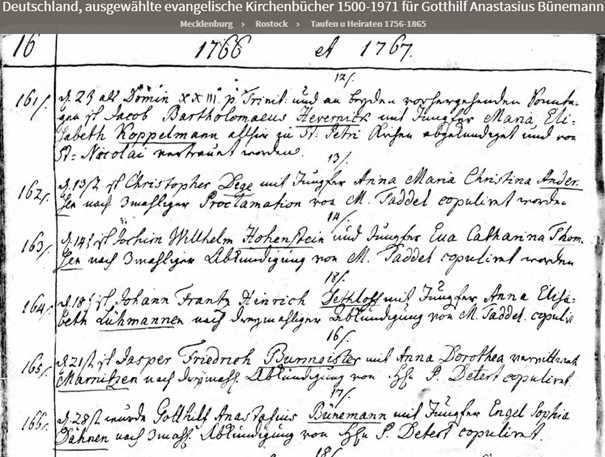 Deutschland, ausgewählte evangelische Kirchenbücher 1500-1971 für Gotthilf Anastasius Bünemann
Mecklenburg › Rostock › Taufen u Heiraten 1756-1865
16 1766 et 1767.
12/.
161/. d. 23 als Domin XXIII. p. Trinit: und an beyden vorhergehenden Sonnta-
gen ist Jacob Bartholomaeus Hevernick mit Jungfer Maria Eli-
sabeth Koppelmann allhie zu St. Petri Kirchen abgekündiget und von
St: Nicolai vertrauet worden.
13/.
162/. ist Christopher Dege mit Jungfer Anna Maria Christina Ander-
sen nach 3mahliger Proclamation von M. Taddel copulirt worden
14/.
163/. ist Jochim Wilhelm Hohenstein und Jungfer Eva Catharina Thom-
sen nach 3mahliger Abkündigung von M. Taddel copulirt worden
164/. ist Johann Frantz Hinrich mit Jungfer Anna Elisa-
beth Lühmannen nach dreymahliger Abkündigung von M. Taddel. copulir
16/.
165/. d. 21/ ist Jasper Friedrich Burmeister mit Anna Dorothea verwittwete
Marnitzen nach dreymahl. Abkündigung von Hh P. Detert copulirt.
17/.
166/. d. 28/ wurde Gotthilf Anastasius Bünemann mit Jungfer Engel Sophia
Dähnen nach 3mahl. Abkündigung von Hh P. Detert copulirt.
18/.